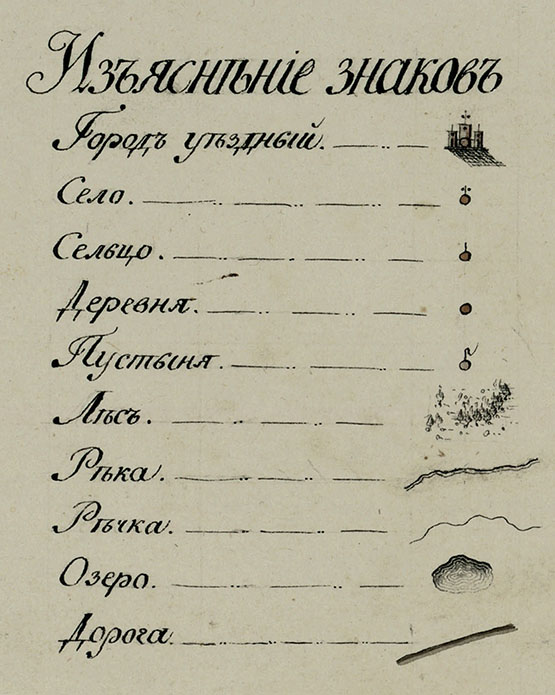 Изъяснѣніе знаковъ
Городъ уѣздный.
Село.
Сельцо.
Деревня.
Пустыня.
Лѣсъ.
Рѣка.
Рѣчка.
Озеро.
Дорога.